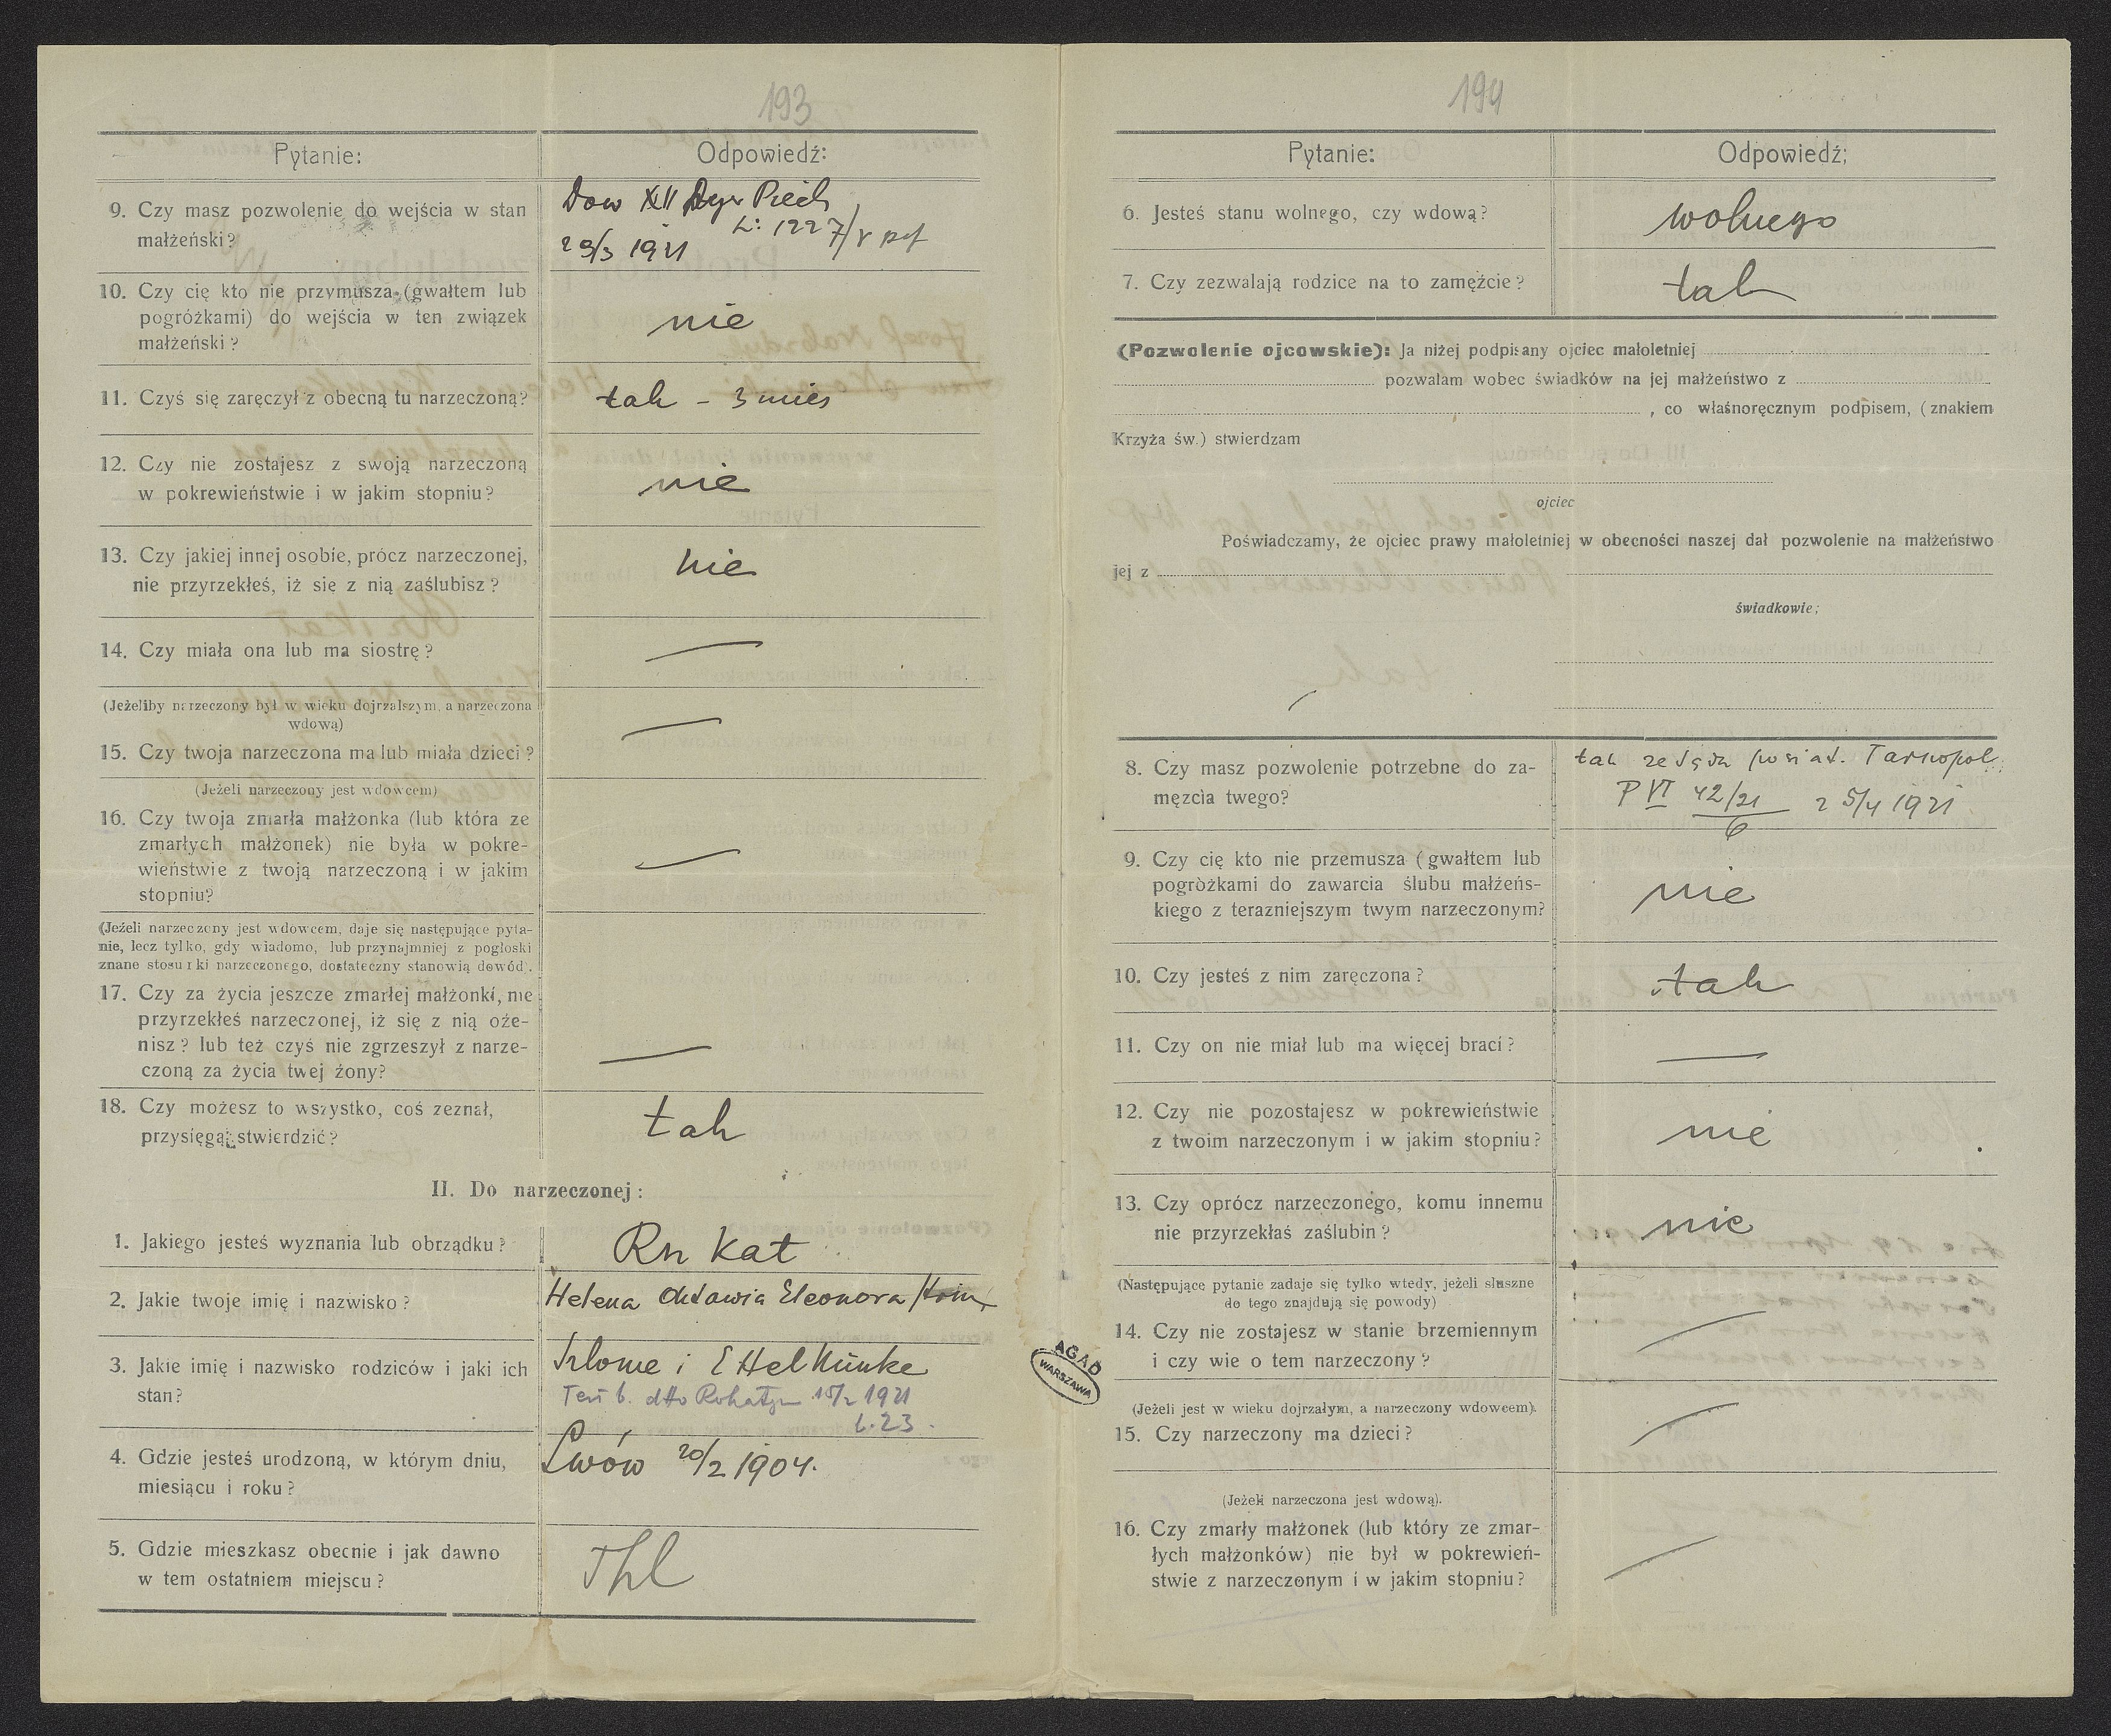 193
Pytanie:
Odpowiedź:
9. Czy masz pozwolenie do wejścia w stan
małżeński?
Dow XII
L: 1227/V
29/3 1921
10. Czy cię kto nie przymusza (gwałtem lub
pogróżkami) do wejścia w ten związek
małżeński?
nie
11. Czyś się zaręczył z obecną tu narzeczoną?
tak – 3 mies
12. Czy nie zostajesz z swoją narzeczoną
w pokrewieństwie i w jakim stopniu?
nie
13. Czy jakiej innej osobie, prócz narzeczonej,
nie przyrzekłeś, iż się z nią zaślubisz?
nie
14. Czy miała ona lub ma siostrę?
—
(Jeżeliby narzeczony był w wieku dojrzalszym, a narzeczona
wdową)
15. Czy twoja narzeczona ma lub miała dzieci?
—
(Jeżeli narzeczony jest wdowcem)
16. Czy twoja zmarła małżonka (lub która ze
zmarłych małżonek) nie była w pokre-
wieństwie z twoją narzeczoną i w jakim
stopniu?
—
(Jeżeli narzeczony jest wdowcem, daje się następujące pyta-
nie, lecz tylko, gdy wiadomo, lub przynajmniej z pogłoski
znane stosunki narzeczonego, dostateczny stanowią dowód).
17. Czy za życia jeszcze zmarłej małżonki, nie
przyrzekłeś narzeczonej, iż się z nią oże-
nisz? lub też czyś nie zgrzeszył z narze-
czoną za życia twej żony?
—
18. Czy możesz to wszystko, coś zeznał,
przysięgą stwierdzić?
tak
II. Do narzeczonej:
1. Jakiego jesteś wyznania lub obrządku?
Rz kat
2. Jakie twoje imię i nazwisko?
Helena Oktawia Eleonora
3. Jakie imię i nazwisko rodziców i jaki ich
stan?
Szlome i Ettel Künke
dtto Rohatyn 15/2 1921
L. 23.
4. Gdzie jesteś urodzoną, w którym dniu,
miesiącu i roku?
Lwów 20/2 1904.
5. Gdzie mieszkasz obecnie i jak dawno
w tem ostatniem miejscu?
AGAD
WARSZAWA
194
Pytanie:
Odpowiedź;
6. Jesteś stanu wolnego, czy wdową?
wolnego
7. Czy zezwalają rodzice na to zamężcie?
tak
(Pozwolenie ojcowskie): Ja niżej podpisany ojciec małoletniej
pozwalam wobec świadków na jej małżeństwo z
, co własnoręcznym podpisem, (znakiem
Krzyża św.) stwierdzam
ojciec
Poświadczamy, że ojciec prawy małoletniej w obecności naszej dał pozwolenie na małżeństwo
jej z
świadkowie;
8. Czy masz pozwolenie potrzebne do za-
męzcia twego?
tak ze Sądu powiat. Tarnopol
P VI 42/21 z 5/4 1921
6
9. Czy cię kto nie przemusza (gwałtem lub
pogróżkami do zawarcia ślubu małżeńs-
kiego z terazniejszym twym narzeczonym?
nie
10. Czy jesteś z nim zaręczona?
tak
11. Czy on nie miał lub ma więcej braci?
—
12. Czy nie pozostajesz w pokrewieństwie
z twoim narzeczonym i w jakim stopniu?
nie
13. Czy oprócz narzeczonego, komu innemu
nie przyrzekłaś zaślubin?
nie
(Następujące pytanie zadaje się tylko wtedy, jeżeli słuszne
do tego znajdują się powody)
14. Czy nie zostajesz w stanie brzemiennym
i czy wie o tem narzeczony?
—
(Jeżeli jest w wieku dojrzałym, a narzeczony wdowcem).
15. Czy narzeczony ma dzieci?
—
(Jeżeli narzeczona jest wdową).
16. Czy zmarły małżonek (lub który ze zmar-
łych małżonków) nie był w pokrewień-
stwie z narzeczonym i w jakim stopniu?
—